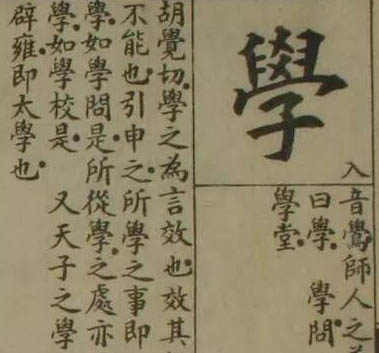 學
入
音鷽師人之
曰學。 學問。
學堂。
胡覺切。學之為言效也。效其
不能也。引申之。所學之事即
學。如學問是。所從學。之處亦
學。如學校是。 又天子之學
辟雍即太學也。